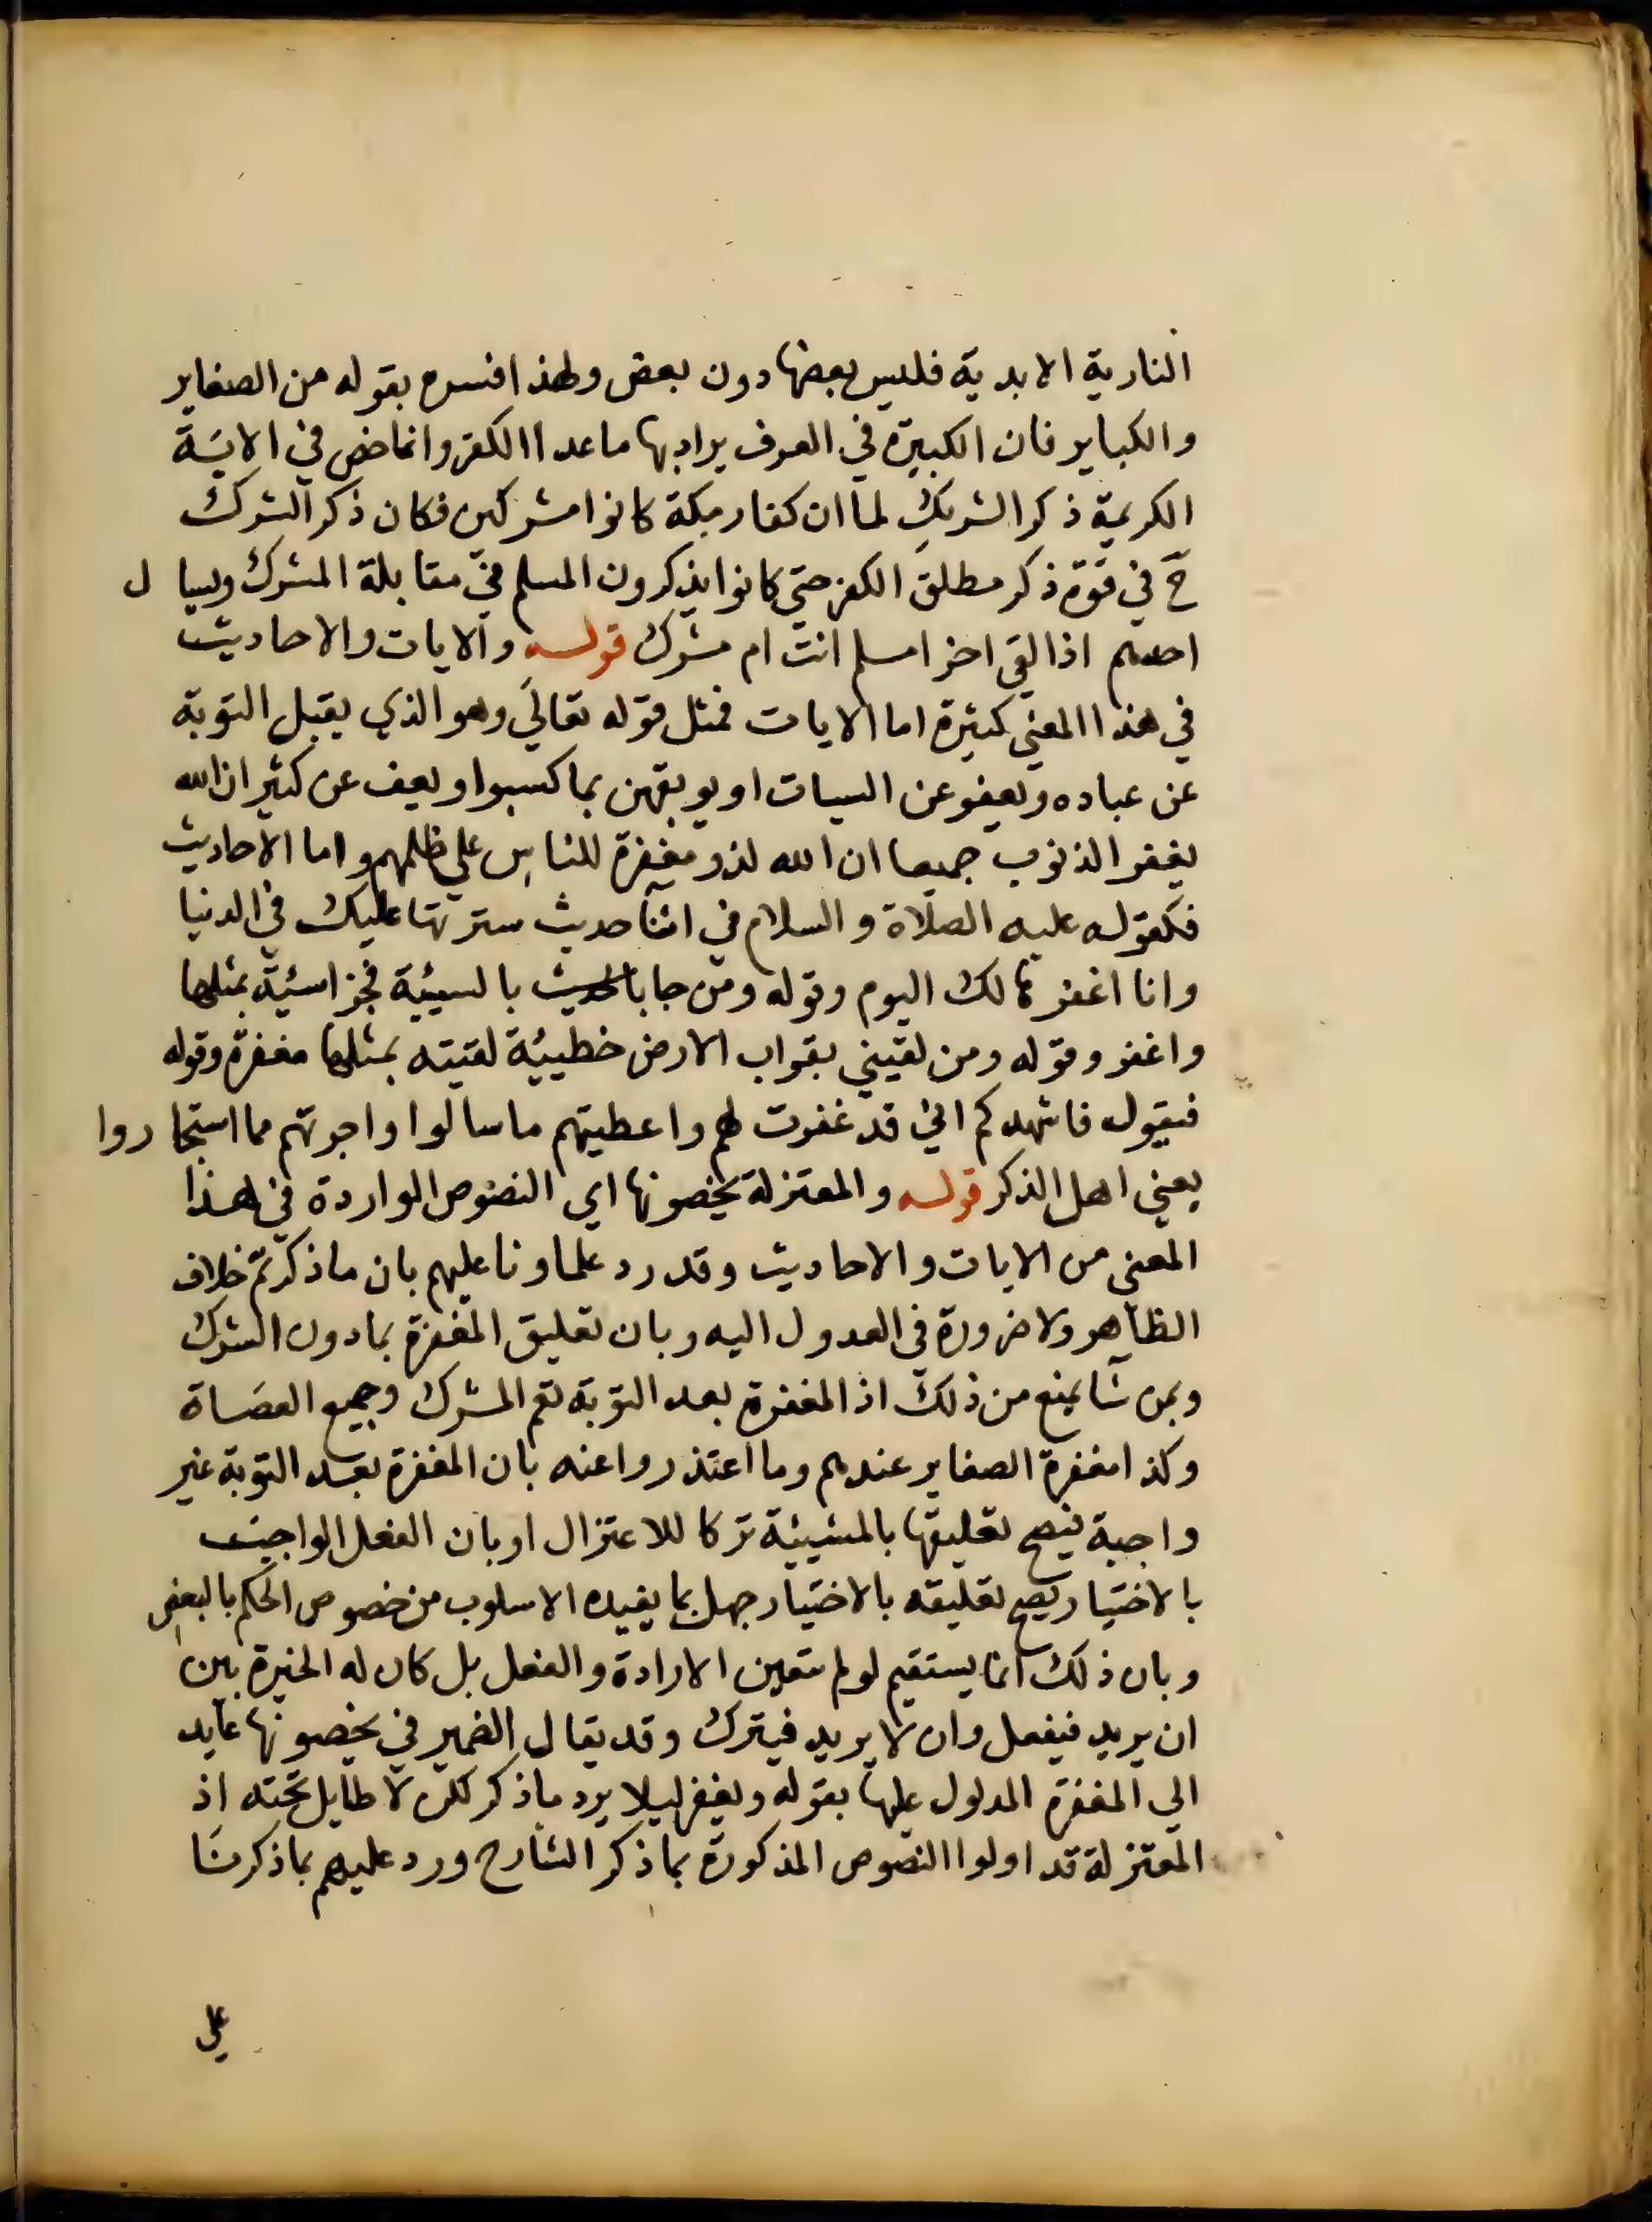 النارية الابدية فليس بعضها دون بعض ولهذا فسره بقوله من الصغاير
والكباير فان الكبيرة في العرف يراد بها ما عدا الكفر وانما خص في الاية
الكريمة ذكر الشريك لما ان كفار مكة كانوا مشركين فكان ذكر الشرك
ح في قوة ذكر مطلق الكفر حتى كانوا يذكرون المسلم في مقابلة المشرك ويسال
احدهم اذا لقى اخر امسلم انت ام مشرك قوله والايات والاحاديث
في هذا المعنى كثيرة اما الايات فمثل قوله تعالى وهو الذي يقبل التوبة
عن عباده ويعفو عن السيات او يوبقهن بما كسبوا ويعف عن كثير ان الله
يغفر الذنوب جميعا ان الله لذو مغفرة للناس على ظلمهم واما الاحاديث
فكقوله عليه الصلاة والسلام في اثنا حديث سترتها عليك في الدنيا
وانا اغفرها لك اليوم وقوله ومن جا بالحديث بالسيئية فجزا سيئة بمثلها
واغفر وقوله ومن لقيني بقراب الارض خطيئية لقيته بمثلها مغفرة وقوله
فيقول فاشهدكم اني قد غفرت لهم واعطيتهم ما سالوا واجرتهم مما استجاروا
يعني اهل الذكر قوله والمعتزلة يخصونها اي النصوص الواردة في هذا
المعنى من الايات والاحاديث وقد رد علماونا عليهم بان ما ذكرتم خلاف
الظاهر ولا ضرورة في العدول اليه وبان تعليق المغفرة بما دون الشرك
وبمن شا يمنع من ذلك اذ المغفرة بعد التوبة تعم المشرك وجميع العصاة
وكذا مغفرة الصغاير عندهم وما اعتذروا عنه بان المغفرة بعد التوبة غير
واجبة فيصح تعليقها بالمشيئية تركا للاعتزال او بان الفعل الواجب
بالاختيار يصح تعليقه بالاختيار جهل بما يفيده الاسلوب من خصوص الحكم بالبعض
وبان ذلك انما يستقيم لو لم تتعين الارادة والفعل بل كان له الخيرة بين
ان يريد فيفعل وان لا يريد فيترك وقد يقال الضمير في يخصونها عايد
الى المغفرة المدلول عليها بقوله ويغفر ليلا يرد ما ذكر لكن لا طايل تحته اذ
المعتزلة قد اولوا النصوص المذكورة بما ذكر الشارح ورد عليهم بما ذكرنا
على